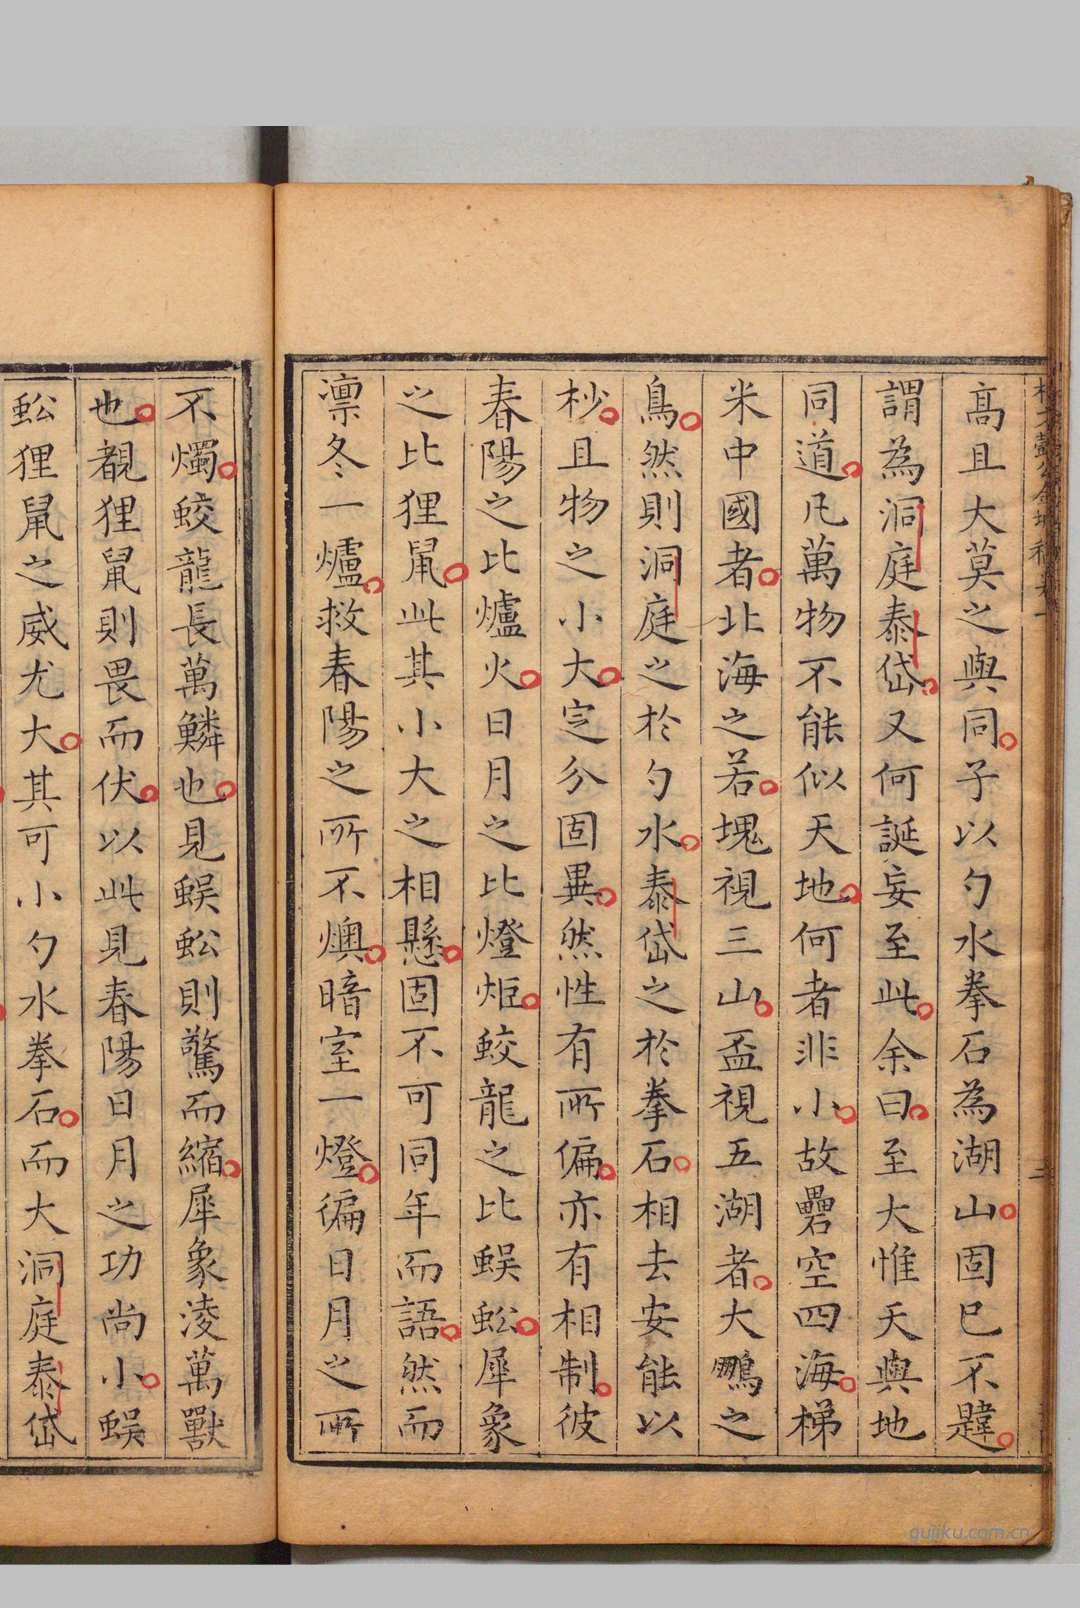 高且大莫之與同子以勺水拳石為湖山固已不韙
謂為洞庭泰岱又何誕妄至此余曰至大惟天與地
同道凡萬物不能似天地何者非小故礨空四海稊
米中國者北海之若塊視三山盃視五湖者大鵬之
鳥然則洞庭之於勺水泰岱之於拳石相去安能以
杪且物之小大定分固異然性有所偏亦有相制彼
春陽之比爐火日月之比燈炬蛟龍之比蜈蚣犀象
之比狸鼠此其小大之相懸固不可同年而語然而
凛冬一爐救春陽之所不燠暗室一燈徧日月之所
不燭蛟龍長萬鱗也見蜈蚣則驚而縮犀象淩萬獸
也覩狸鼠則畏而伏以此見春陽日月之功尚小蜈
蚣狸鼠之威尤大其可小勺水拳石而大洞庭泰岱
gujiku.com.cn